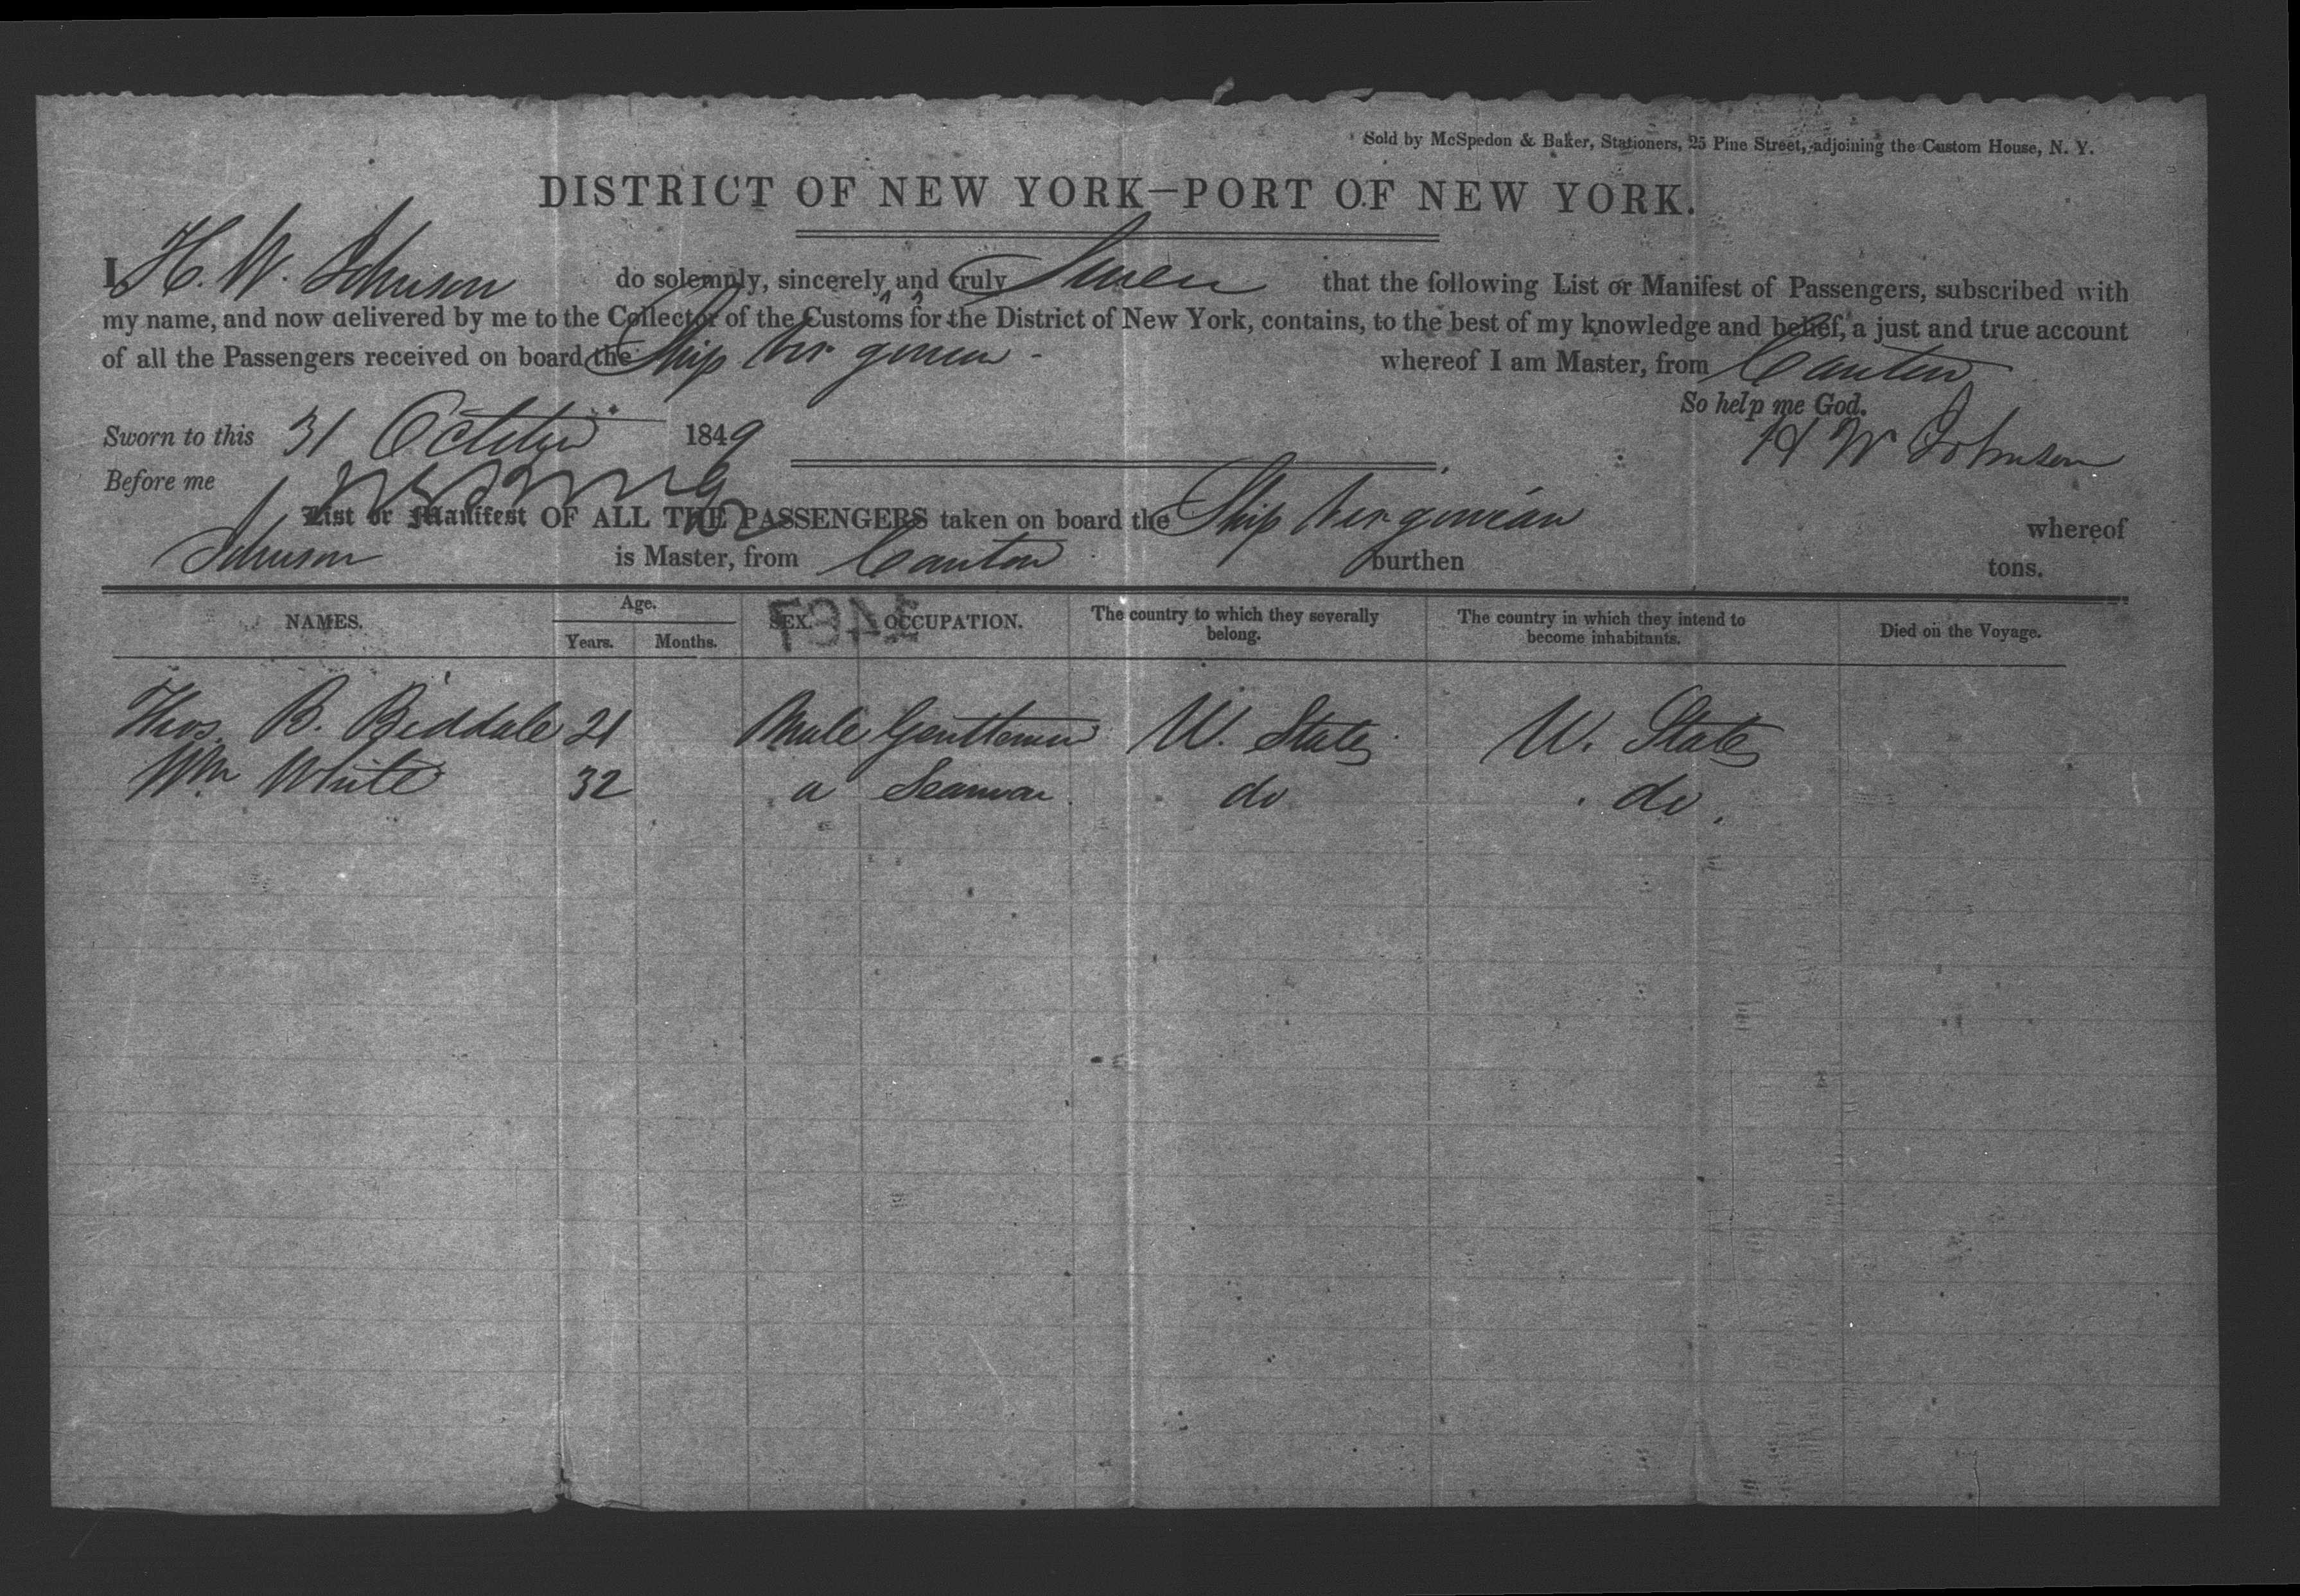 Sold by McSpedon & Baker, Stationers, 25 Pine Street, adjoining the Custom House, N. Y.
DISTRICT OF NEW YORK—PORT OF NEW YORK.
I H. W. Johnson do solemnly, sincerely and truly Swear that the following List or Manifest of Passengers, subscribed with
my name, and now delivered by me to the Collector of the Customs for the District of New York, contains, to the best of my knowledge and belief, a just and true account
of all the Passengers received on board the Ship Virginian whereof I am Master, from Canton
So help me God.
Sworn to this 31 October 1849 H W Johnson
Before me
List or Manifest OF ALL THE PASSENGERS taken on board the Ship Virginian whereof
Johnson is Master, from Canton burthen tons.
NAMES. Age. Years. Months. SEX. OCCUPATION. The country to which they severally belong. The country in which they intend to become inhabitants. Died on the Voyage.
Thos. B. Biddale 21 Male Gentleman U. States U. States
Wm White 32 " Seaman do do.